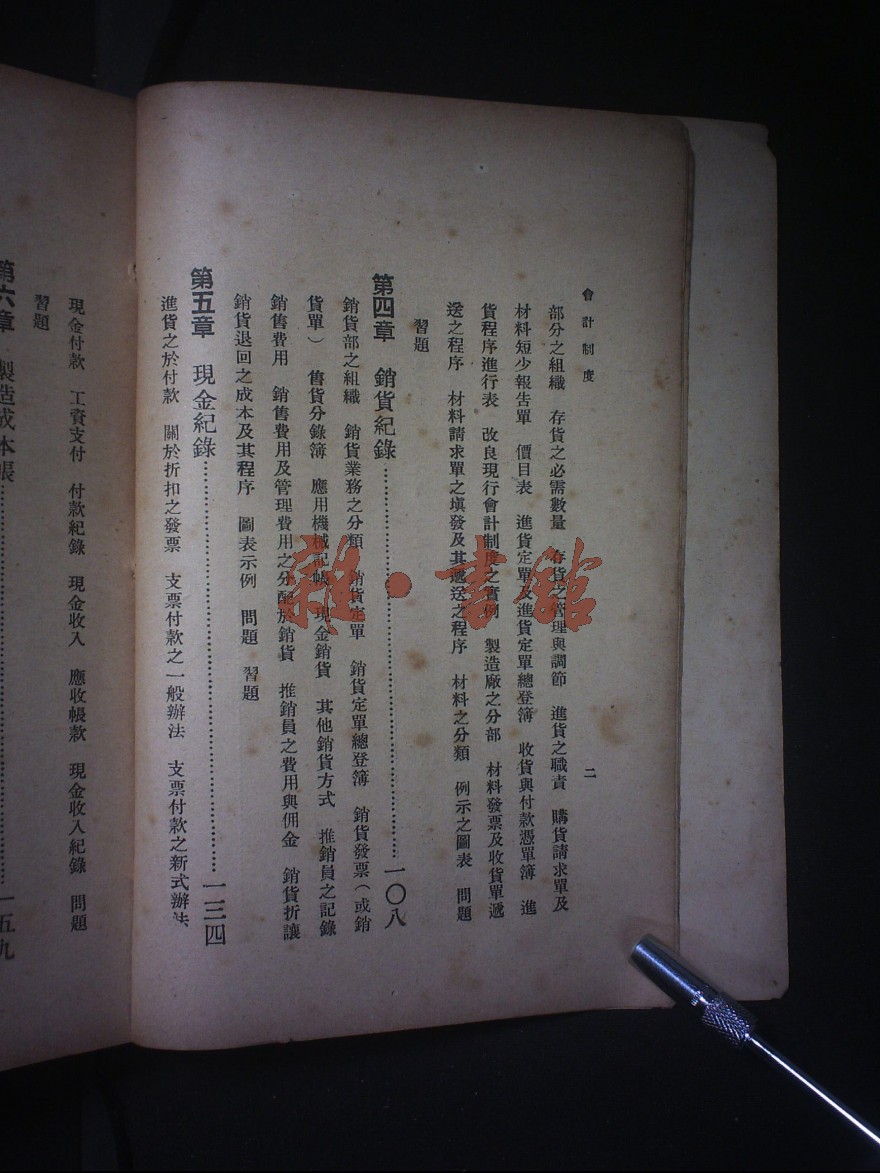 會計制度
二
部分之組織 存貨之必需數量 存貨之管理與調節 進貨之職責 購貨請求單及
材料短少報告單 價目表 進貨定單及進貨定單總登簿 收貨與付款憑單簿 進
貨程序進行表 改良現行會計制度之實例 製造廠之分部 材料發票及收貨單遞
送之程序 材料請求單之填發及其遞送之程序 材料之分類 例示之圖表 問題
習題
第四章 銷貨紀錄……一〇八
銷貨部之組織 銷貨業務之分類 銷貨定單 銷貨定單總登簿 銷貨發票(或銷
貨單) 售貨分錄簿 應用機械記帳 現金銷貨 其他銷貨方式 推銷員之記錄
銷售費用 銷售費用及管理費用之分配於銷貨 推銷員之費用與佣金 銷貨折讓
銷貨退回之成本及其程序 圖表示例 問題 習題
第五章 現金紀錄……一三四
進貨之於付款 關於折扣之發票 支票付款之一般辦法 支票付款之新式辦法
現金付款 工資支付 付款紀錄 現金收入 應收帳款 現金收入紀錄 問題
習題
第六章 製造成本帳……一五九
雜·書館